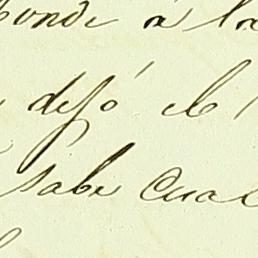 onde á la
dejó el
sabe cual